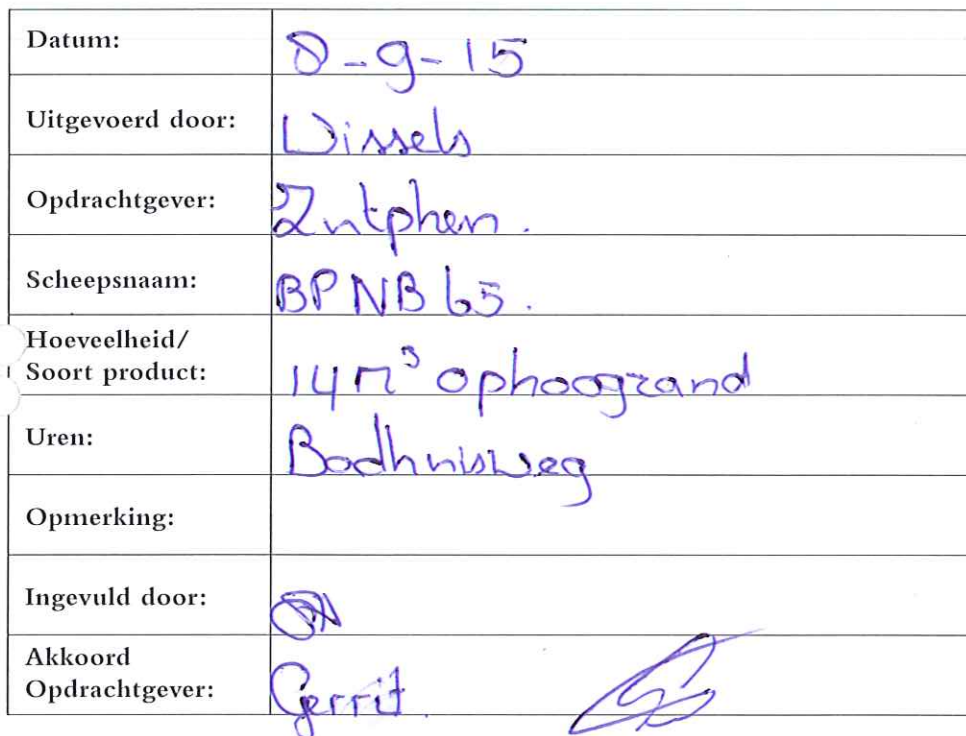 Datum: 8-9-15
Uitgevoerd door: Wissels
Opdrachtgever: Zutphen.
Scheepsnaam: BPNB65.
Hoeveelheid/
Soort product: 14m³ ophoogzand
Uren: Badhuisweg
Opmerking:
Ingevuld door:
Akkoord
Opdrachtgever: Gerrit.